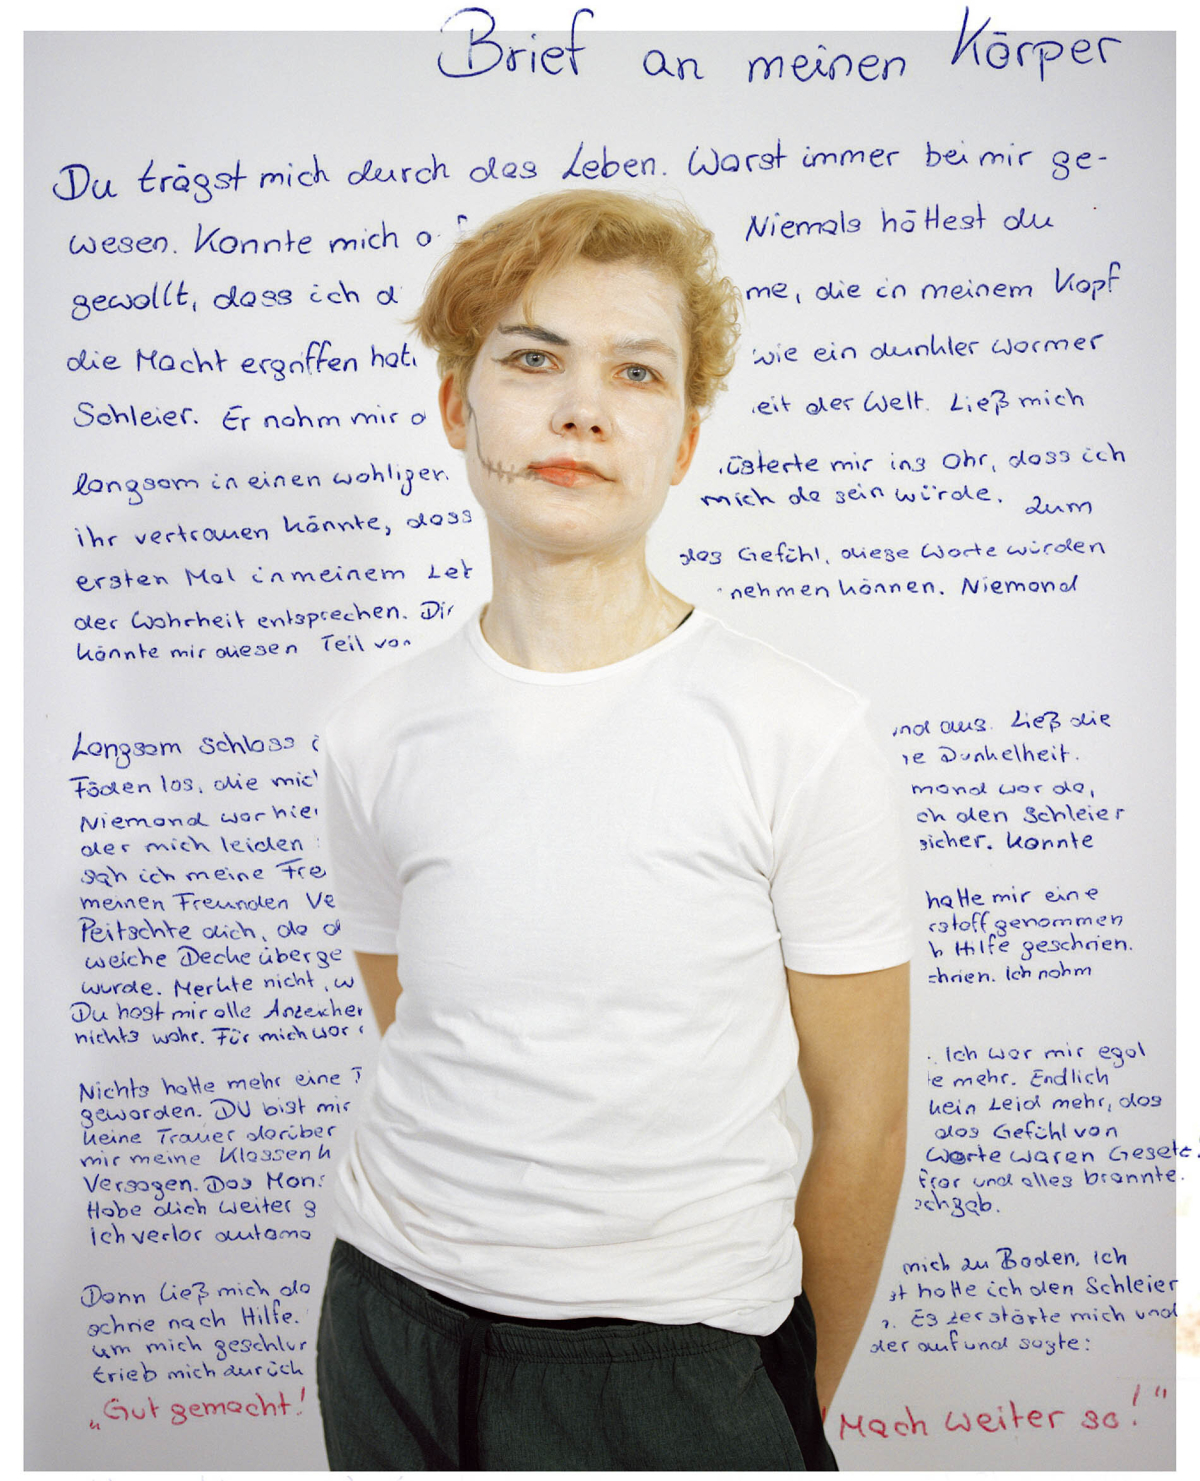 Brief an meinen Körper
Du trägst mich durch das Leben. Warst immer bei mir ge-
wesen. Konnte mich Niemals hättest du
gewollt, dass ich d me, die in meinem Kopf
die Macht ergriffen hat. wie ein dunkler warmer
Schleier. Er nahm mir eit der Welt. Ließ mich
langsam in einen wohligen üsterte mir ins Ohr, dass ich
ihr vertrauen könnte, dass mich da sein würde. Zum
ersten Mal in meinem Leb das Gefühl, diese Worte würden
der Wahrheit entsprechen. Dir nehmen können. Niemand
könnte mir diesen Teil von
Langsam schloss i nd aus. Ließ die
Fäden los, die mic e Dunkelheit.
Niemand war hier mand war da,
der mich leiden ch den Schleier
sah ich meine Fre sicher. Konnte
meinen Freunden Ve hatte mir eine
Peitschte dich, da d stoff genommen
weiche Decke überge b Hilfe geschrien.
wurde. Merkte nicht, w chrien. Ich nahm
Du hast mir alle Anzeichen
nichts wahr. Für mich war
Nichts hatte mehr eine Ich war mir egal
geworden. DU bist mir e mehr. Endlich
keine Trauer darüber kein Leid mehr, das
mir meine Klassenk das Gefühl von
Versagen. Das Mons Worte waren Gesetz
Habe dich weiter g fror und alles brannte.
ich verlor automa chgab.
Dann ließ mich da mich zu Boden. Ich
schrie nach Hilfe. hatte ich den Schleier
um mich geschlun Es zerstörte mich und
trieb mich zurück der auf und sagte:
„Gut gemacht! Mach weiter so!“